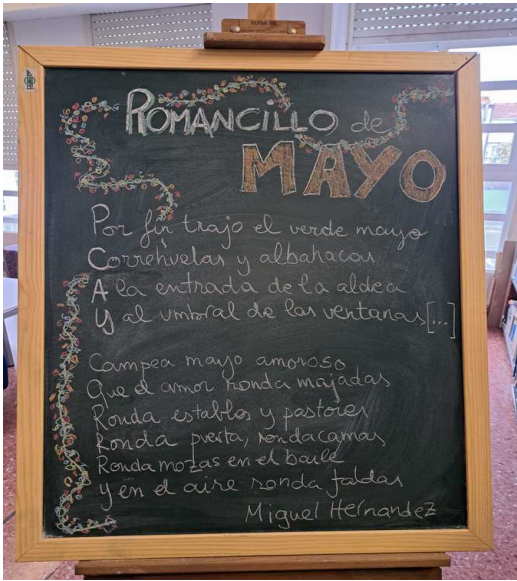 ROMANCILLO de
MAYO
Por fin trajo el verde mayo
Correhuelas y albahacas
A la entrada de la aldea
Y al umbral de las ventanas [...]
Campea mayo amoroso
Que el amor ronda majadas
Ronda establos y pastores
Ronda puerta, ronda camas
Ronda mozas en el baile
y en el aire ronda faldas
Miguel Hernandez